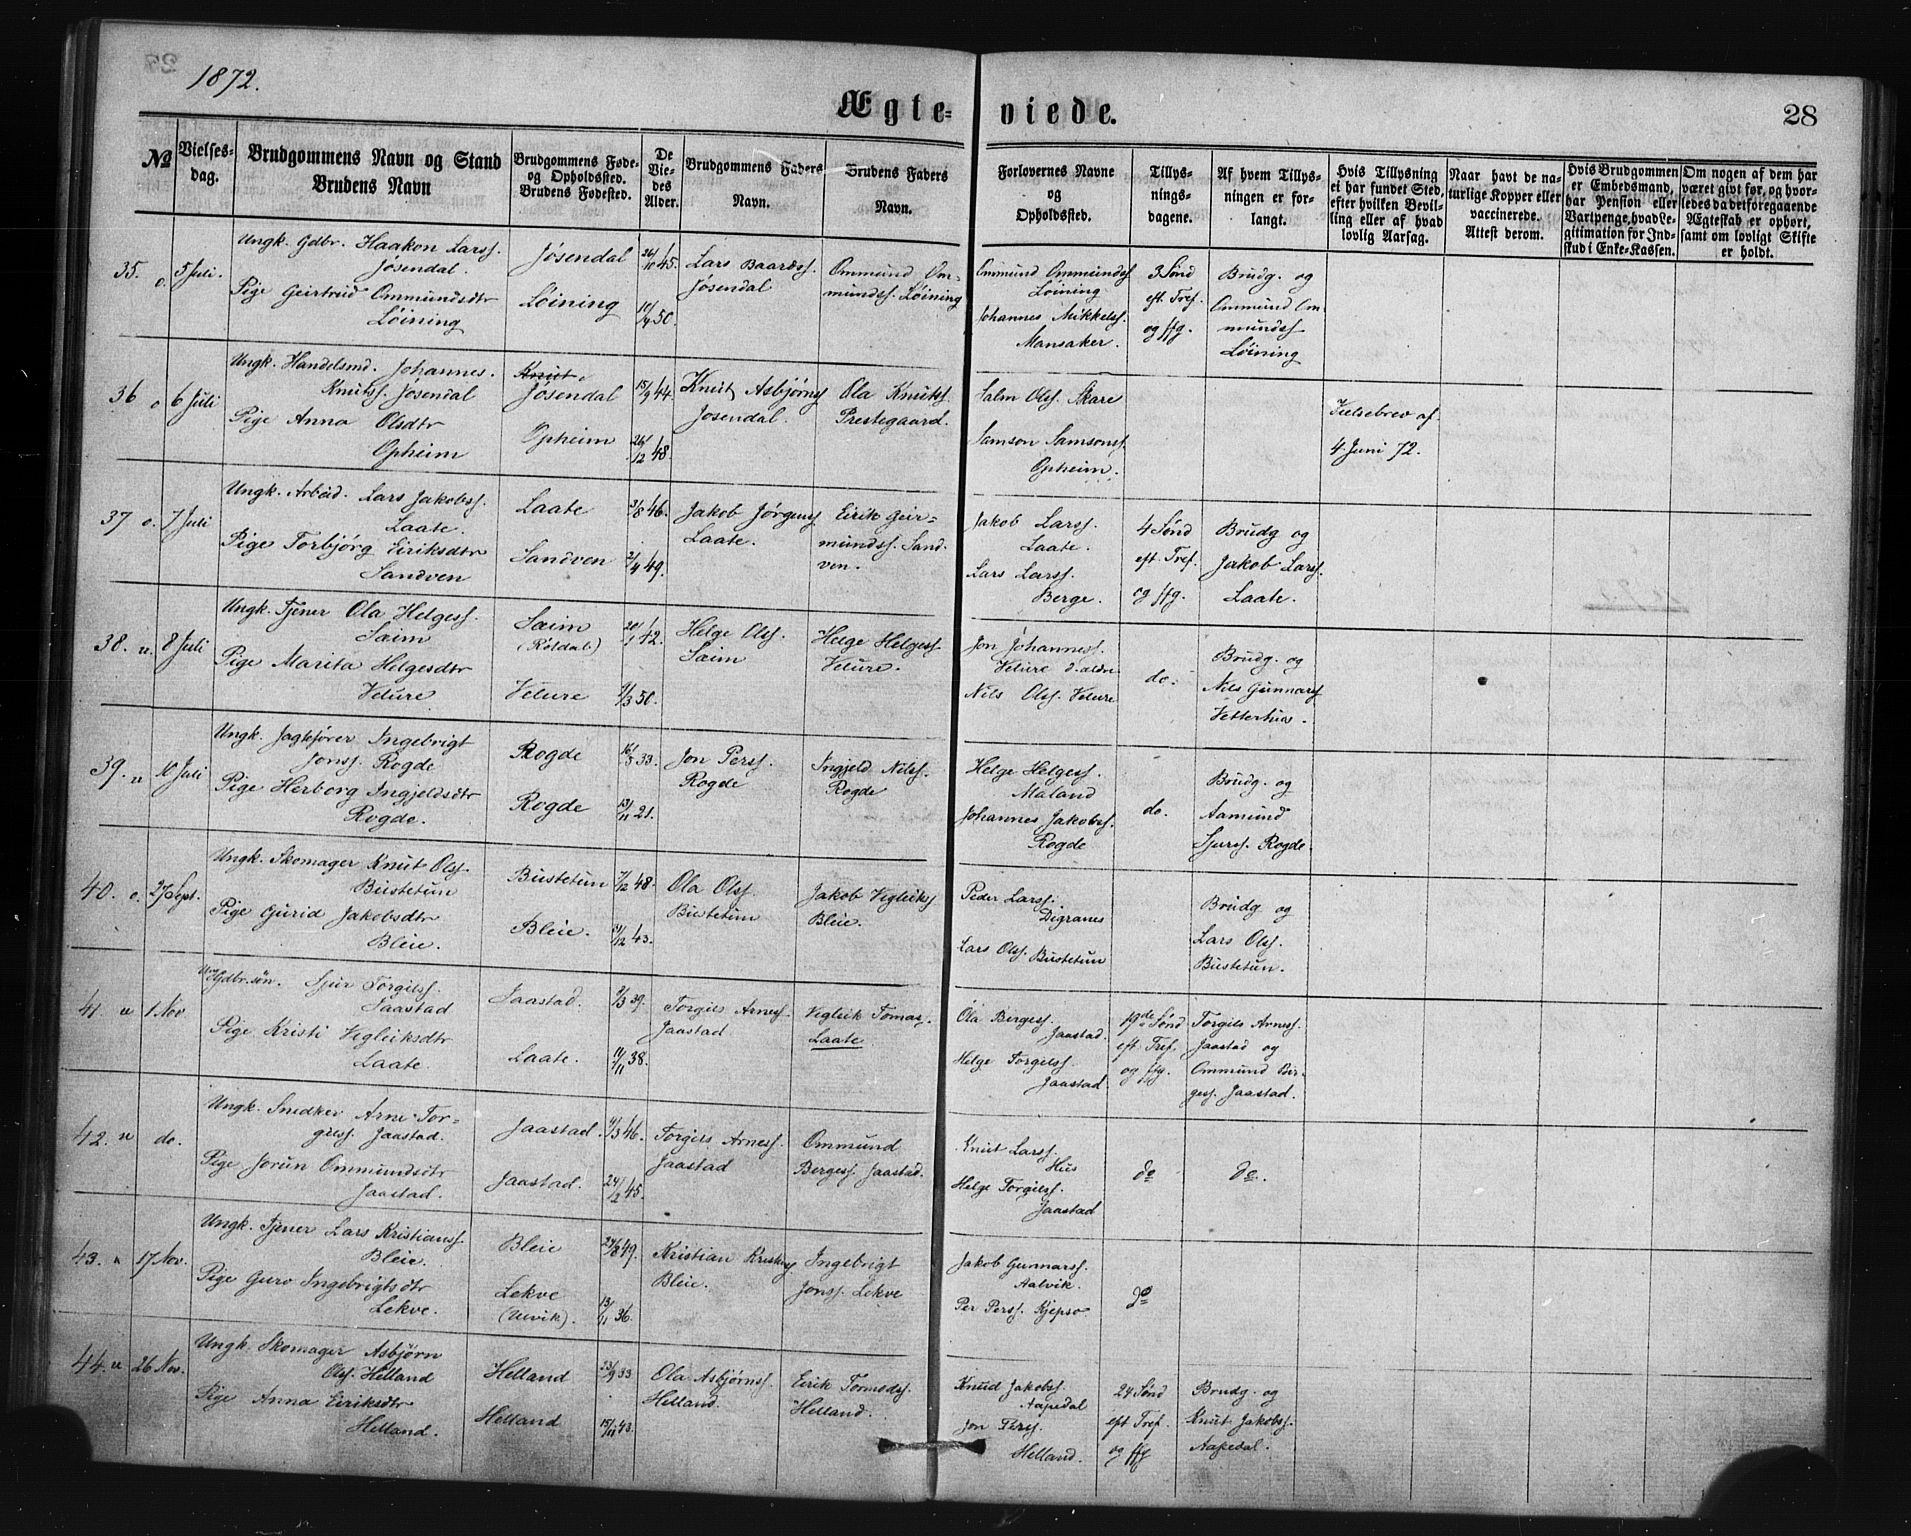 1872.
28
Ægte-
viede.
No
Vielses-
dag.
Brudgommens Navn og Stand
Brudens Navn
Brudgommens Føde-
og Opholdssted.
Brudens Fødested.
De
Vie-
des
Alder.
Brudgommens Faders
Navn.
Brudens Faders
Navn.
Forlovernes Navne
og
Opholdssted.
Tillys-
nings-
dagene.
Af hvem Tillys-
ningen er for-
langt.
Hvis Tillysning
ei har fundet Sted,
efter hvilken Bevil-
ling eller af hvad
lovlig Aarsag.
Naar havt de na-
turlige Kopper eller
vaccinerede.
Attest derom.
Hvis Brudgommen
er Embedsmand,
har Pension eller
Vartpenge, hvad Le-
gitimation for Ind-
skud i Enke-Kassen.
Om nogen af dem har
været givt før, og hvor-
ledes da det foregaaende
Ægteskab er ophørt,
samt om lovligt Skifte
er holdt.
35. o. 5 Juli.
Ungk. Gdbr. Haakon Larss.
Jøsendal.
Pige Geirtrud Ommundsdtr
Løining
Jøsendal
Løining
26/10 45.
10/4 50.
Lars Baardss.
Jøsendal
Ommund Om-
mundss. Løining
Ommund Ommundss
Løining
Johannes Mikkelss.
Mansaker.
3 Sønd
eft. Tref.
og ffg.
Brudg. og
Ommund Om-
mundss
Løining
36 o 6 Juli
Ungk. Handelsmd. Johannes
Knutss. Jøsendal
Pige Anna Olsdtr
Opheim
Knut
Jøsendal
Opheim
15/9 44.
26/12 48.
Knut Asbjørns
Jøsendal.
Ola Knutss.
Prestegaard.
Salm Olss. Skare
Samson Samsonss.
Opheim.
Vielsebrev af
4 Juni 72.
37 o. 7 Juli
Ungk. Arbeid. Lars Jakobss.
Laate.
Pige Torbjørg Eiriksdtr
Sandven
Laate
Sandven
3/8 46.
2/4 49.
Jakob Jørgenss
Laate.
Eirik Geir-
mundss. Sand-
ven.
Jakob Larss.
Laate.
Lars Larss.
Berge.
4 Sønd
eft. Tref.
og ffg.
Brudg og
Jakob Larss.
Laate.
38. u. 8 Juli
Ungk. Tjener Ola Helgess.
Saim
Pige Marita Helgesdtr
Velure
Saim
(Røldal)
Velure
20/1 42.
9/3 50.
Helge Olss.
Saim
Helge Helgess.
Velure.
Jon Johanness.
Velure d. aldre
Nils Olss. Velure
do.
Brudg. og
Nils Gunnarss
Vetterhus.
39. u 10 Juli
Ungk. Jagtefører Ingebrigt
Jonss. Rogde
Pige Herborg Ingjeldsdtr
Rogde.
Rogde
Rogde
16/8 33.
13/11 21.
Jon Perss.
Rogde
Ingjeld Nilss.
Rogde
Helge Helgess.
Maland
Johannes Jakobss.
Rogde
do.
Brudg. og
Aamund
Sjurss. Rogde.
40. o. 27 Sept.
Ungk. Skomager Knut Olss.
Bustetun
Pige Gurid Jakobsdtr
Bleie.
Bustetun
Bleie.
7/12 48.
17/12 43.
Ola Olss.
Bustetun
Jakob Vigleikss
Bleie.
Peder Larss.
Digranes
Lars Olss. Bustetun
Brudg og
Lars Olss.
Bustetun.
41 u 1 Nov
Ung Gdbr. søn. Sjur Torgilss.
Jaastad
Pige Kristi Vigleiksdtr
Laate.
Jaastad.
Laate.
9/3 39.
11/11 38.
Torgils Arness.
Jaastad
Vigleik Tomas.
Laate
Ola Bergess.
Jaastad.
Helge Torgilss.
Jaastad
Sønd
eft. Tref.
og ffg.
Torgils Arness.
Jaastad og
Ommund Ber-
gess. Jaastad.
42. u do.
Ungk. Snedker Arne Tor-
gilss. Jaastad.
Pige Jorun Ommundsdtr
Jaastad.
Jaastad.
Jaastad.
9/3 46.
24/2 45.
Torgils Arness.
Jaastad
Ommund
Bergess. Jaastad.
Knut Larss.
Hus
Helge Torgilss.
Jaastad
do
do.
43. u 17 Nov.
Ungk. Tjener Lars Kristianss.
Bleie.
Pige Guro Ingebrigtsdtr
Lekve.
Bleie
Lekve
(Ulvik).
24/8 49.
13/11 36.
Kristian
Bleie.
Ingebrigt
Jonss. Lekve
Jakob Gunnarss.
Aalvik.
Per Perss. Kjepso
do
44. u 26 Nov.
Ungk. Skomager Asbjørn
Olss. Helland
Pige Anna Eiriksdtr
Helland.
Helland
Helland
23/9 33
15/11 43.
Ola Asbjørnss.
Helland.
Eirik Tormodss.
Helland.
Knud Jakobss.
Aapedal
Jon Perss.
Helland.
24 Sønd
eft Tref.
og ffg
Brudg. og
Knut Jakobss.
Aapedal.